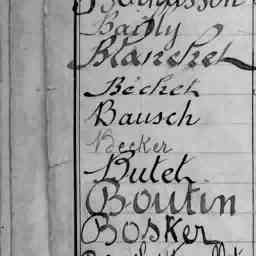 Bailly
Blanchet
Béchet
Bausch
Becker
Butet
Boutin
Bosker